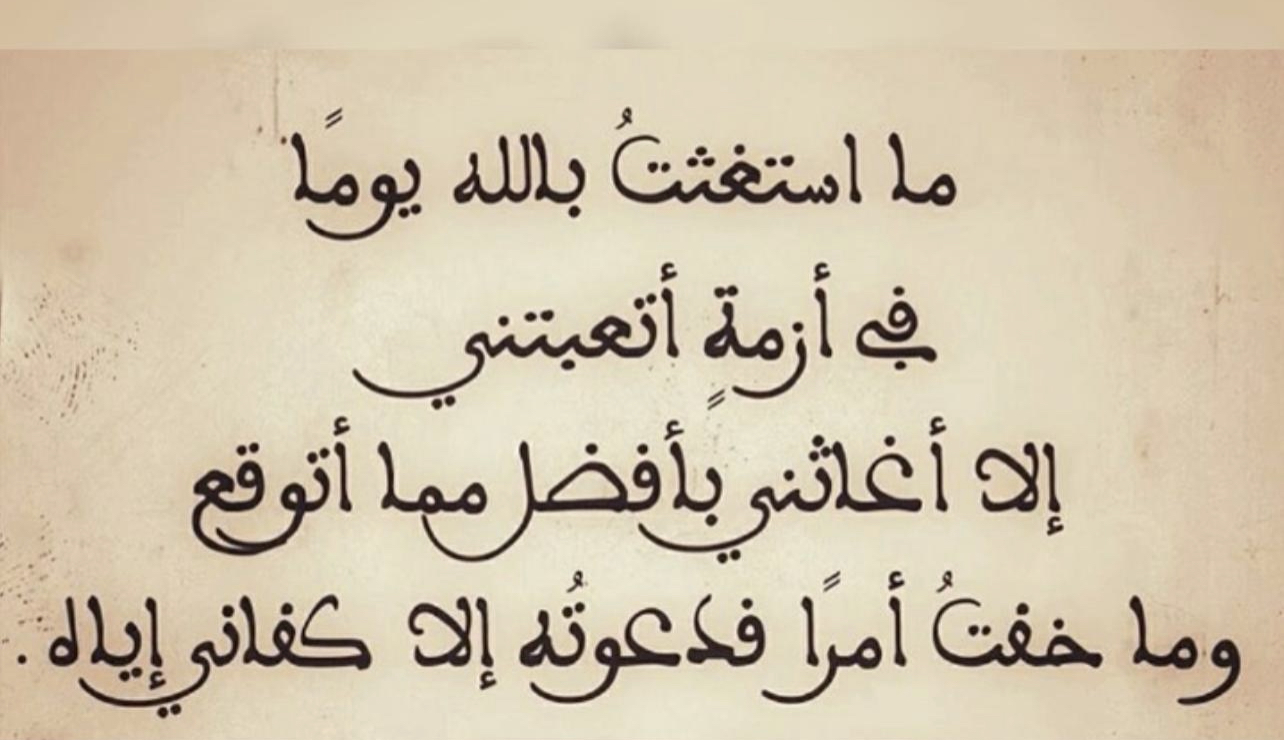 ما استغثتُ بالله يومًا
في أزمةٍ أتعبتني
إلا أغاثني بأفضل مما أتوقع
وما خفتُ أمرًا فدعوتُه إلا كفاني إياه .